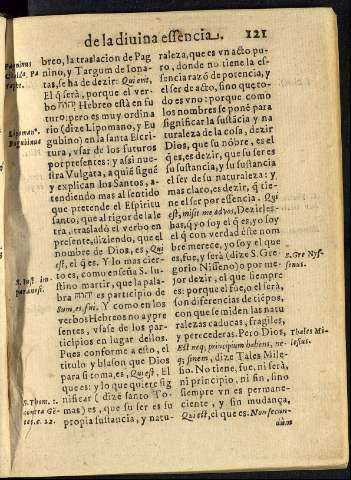 de la diuina essencia. 121
breo, la traslacion de Pag
nino, y Targum de Iona-
tas, se ha de dezir: Qui erit,
El q̃ serà, porque el ver
bo Hebreo està en su
turo: pero es muy ordina
rio (dize Lipomano, y Eu
gubino) en la santa Escri
tura, vsar de los futuros
por presentes: y assi nue-
stra Vulgata, a quiẽ siguẽ
y explican los Santos, a-
tendiendo mas al sentido
que pretende el Espiritu
santo, que al rigor de la le
tra, trasladò el verbo en
presente, diziendo, que el
nombre de Dios, es, Qui
est, el q̃ es. Y lo mas cier-
to es, como enseña S. Iu-
stino martir, que la pala-
bra es participio de
Sum, es, fui. Y como en los
verbos Hebreos no ay pre
sentes, vsase de los par-
ticipios en lugar dellos.
Pues conforme a esto, el
titulo y blason que Dios
para si toma, es, Qui est. El
que es: y lo que quiere sig
nificar (dize santo To-
mas) es, que su ser es su
propia sustancia, y natu-
Paguinus
Lipoman⁹.
Eugubinus
S. Iust. in
S. Thom. 1.
contra Gẽ-
tes, c. 22.
raleza, que es vn acto pu-
ro, donde no tiene la es-
sencia razõ de potencia, y
el ser de acto, sino que to-
do es vno: porque como
los nombres se ponẽ para
significar la sustãcia y na
turaleza de la cosa, dezir
Dios, que su nõbre, es el
q̃ es, es dezir, que su ser es
su sustancia, y su sustancia
el ser de su naturaleza: y
mas claro, es dezir, q̃ tie-
ne el ser por essencia. Qui
est, misit me ad vos, Dezirles
has, q̃ yo soy el q̃ es, yo soy
el q̃ con verdad este nom
bre merece, yo soy el que
es, fue, y serà (dize S. Gre
gorio Nisseno) o por me-
jor dezir, el que siempre
es: porque el fue, o el serà,
son diferencias de tiẽpos,
con que se miden las natu
ralezas caducas, fragiles,
y perecederas. Pero Dios,
Est req. principium habens, ne
q; finem, dize Tales Mile-
sio. No tiene, fue, ni serà,
ni principio, ni fin, sino
siempre vn es permane-
ciente, y sin mudança,
Qui est, el que es. Non secun-
dum
S. Gre Nys-
senus.
Thales Mi-
lesius.